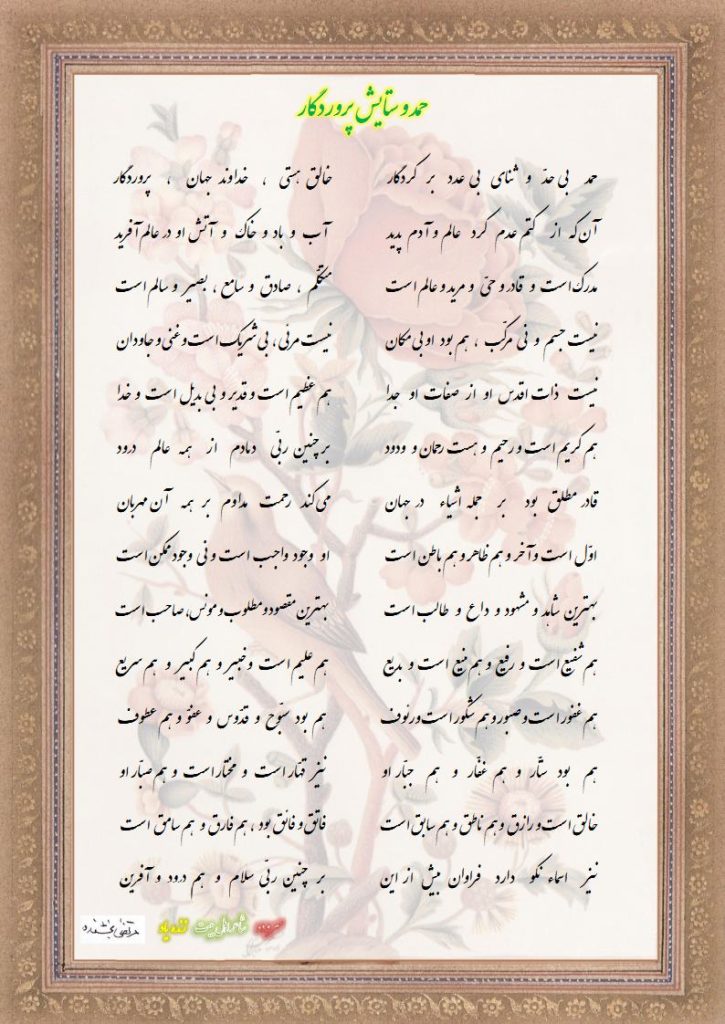 حمد و ستایش پروردگار
حمد بی حدّ و ثنای بی عدد بر کردگار خالق هستی ، خداوند جهان ، پروردگار
آن که از کتم عدم کرد عالم و آدم پدید آب و باد و خاک و آتش او در عالم آفرید
مدرک است و قادر و حیّ و مرید و عالم است متکلّم ، صادق و سامع ، بصیر و سالم است
نیست جسم و نی مرکّب ، هم بود او بی مکان نیست مرئی، بی شریک است و غنی و جاودان
نیست ذات اقدس او از صفات او جدا هم عظیم است و قدیر و بی بدیل است و خدا
هم کریم است و رحیم و هست رحمان و ودود بر چنین ربّی دمادم از همه عالم درود
قادر مطلق بود بر جمله اشیاء در جهان می کند رحمت مداوم بر همه آن مهربان
اوّل است و آخر و هم ظاهر و هم باطن است او وجود واجب است و نی وجود ممکن است
بهترین شاهد و مشهود و داع و طالب است بهترین مقصود و مطلوب و مونس، صاحب است
هم شفیع است و رفیع و هم منیع است و بدیع هم علیم است و خبیر و هم کبیر و هم سریع
هم غفور است و صبور و هم شکور است و رئوف هم بود سبّوح و قدّوس و عفوّ و هم عطوف
هم بود ستّار و هم غفّار و هم جبّار او نیز قهّار است و مختار است و هم صبّار او
خالق است و رازق و هم ناطق و هم سابق است فاتق و فائق بود ، هم فارق و هم سامق است
نیز اسماء نکو دارد فراوان بیش از این بر چنین ربّی سلام و هم درود و آفرین
شاعر اهل بیت زنده یاد مرتضی بخشنده